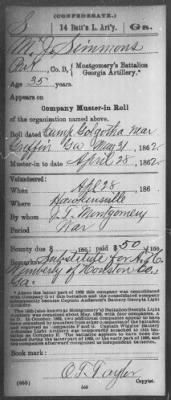 (CONFEDERATE.)
S 14 Batt'n L. Art'y. Ga.
M. J. Simmons
Pvt, Co. B, Montgomery's Battalion Georgia Artillery.*
Age 35 years.
Appears on
Company Muster-in Roll
of the organization named above.
Roll dated Camp Golgotha near
Griffin Ga May 31, 1862.
Muster-in to date April 28, 1862.
Volunteered:
When Apl 28, 186
Where Hawkinsville
By whom J. T. Montgomery
Period War
Bounty due $ 100; paid $ 50 100
Remarks: Substitute for A. C.
Wimberly of Houston Co,
Ga.
Book mark:
O. T. Taylor
Copyist.